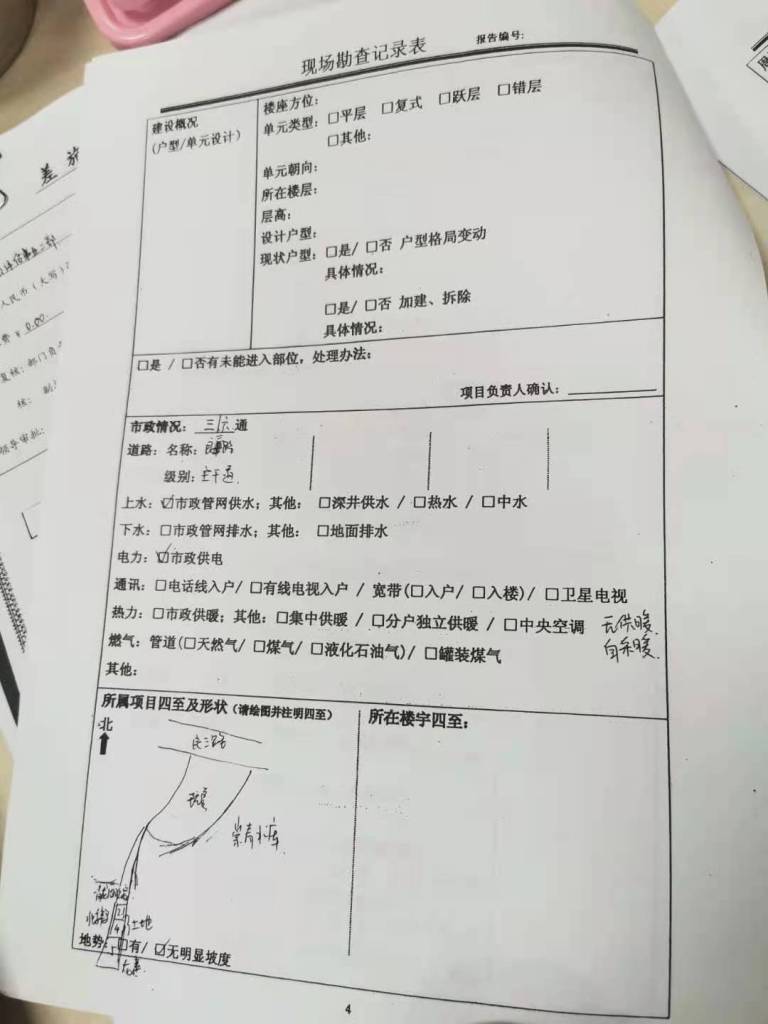 现场勘查记录表
报告编号:
建设概况
(户型/单元设计)
楼座方位:
单元类型: □平层 □复式 □跃层 □错层
□其他:
单元朝向:
所在楼层:
层高:
设计户型:
现状户型: □是/ □否 户型格局变动
具体情况:
□是/ □否 加建、拆除
具体情况:
□是 / □否有未能进入部位，处理办法:
项目负责人确认:
市政情况: 三 通
道路: 名称:
级别: 主干道
上水: ☑市政管网供水; 其他: □深井供水 / □热水 / □中水
下水: □市政管网排水; 其他: □地面排水
电力: ☑市政供电
通讯: □电话线入户/ □有线电视入户 / 宽带(□入户/ □入楼)/ □卫星电视
热力: □市政供暖; 其他: □集中供暖 / □分户独立供暖 / □中央空调 无供暖
自采暖
燃气: 管道(□天然气/ □煤气/ □液化石油气)/ □罐装煤气
其他:
所属项目四至及形状 (请绘图并注明四至)
所在楼宇四至:
北
崇青水库
土地
地势: □有/ ☑无明显坡度
4
差旅
人民币 (大写)
费 ¥ 0.00.
复核: 部门
核:
领导审批: